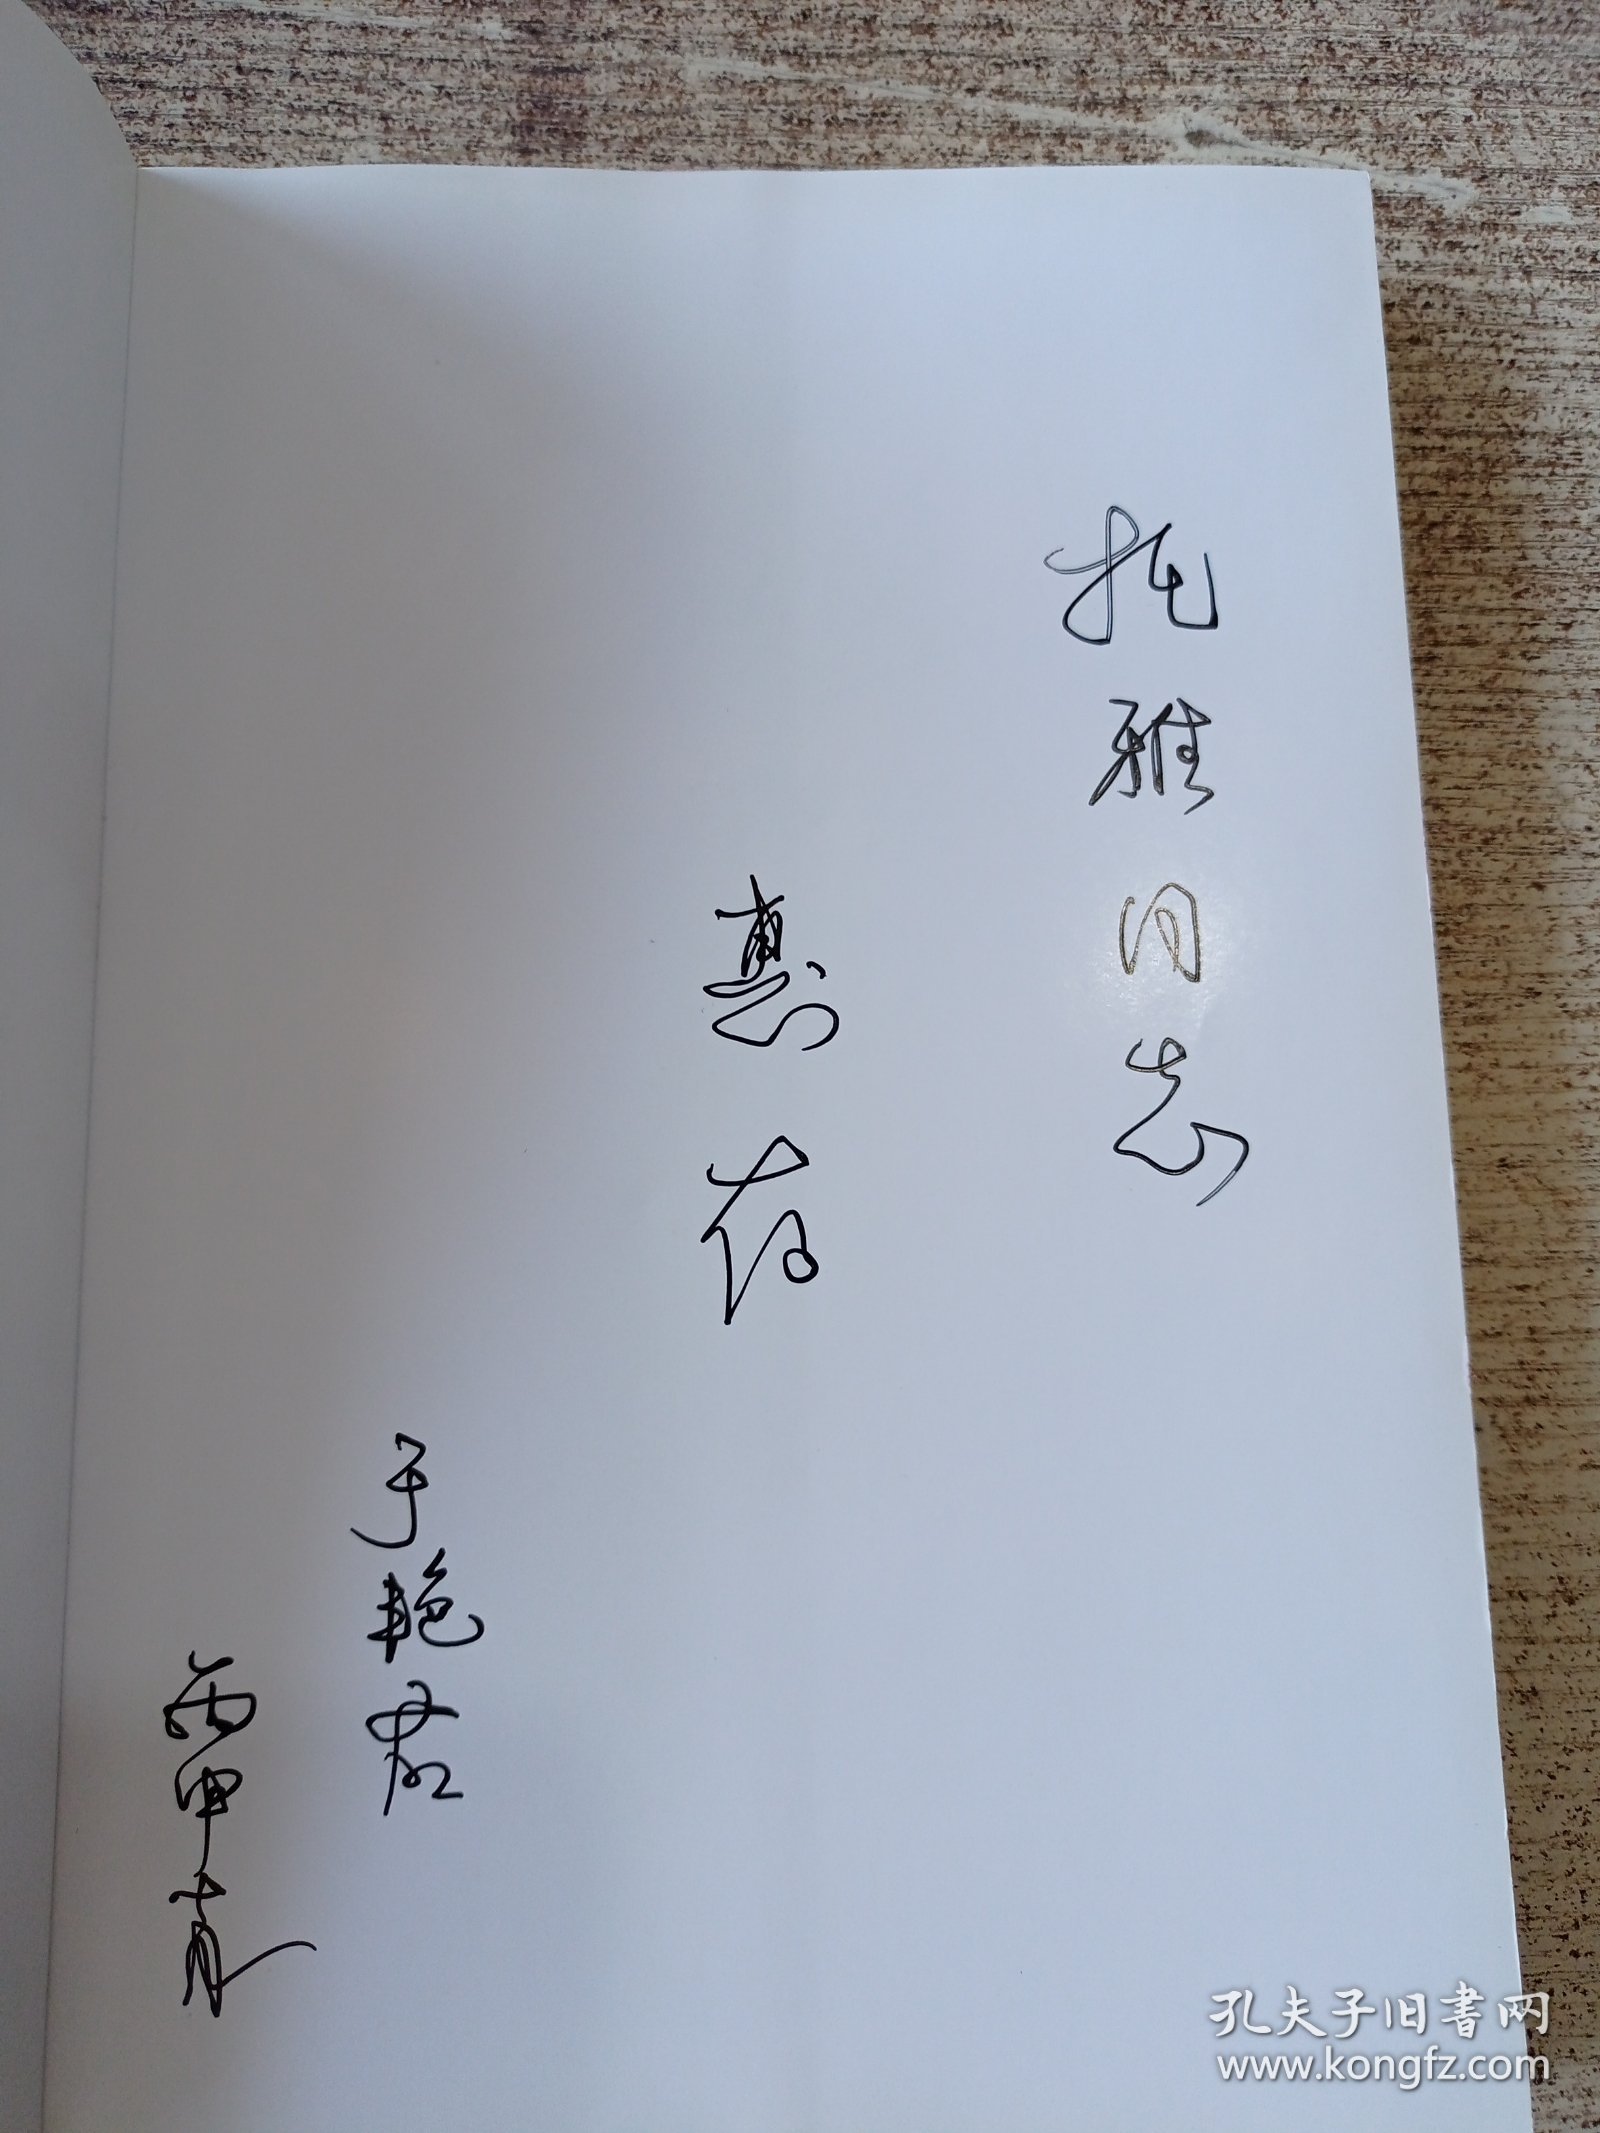 托雅同志
惠存
于艳君
丙申
孔夫子旧书网
www.kongfz.com